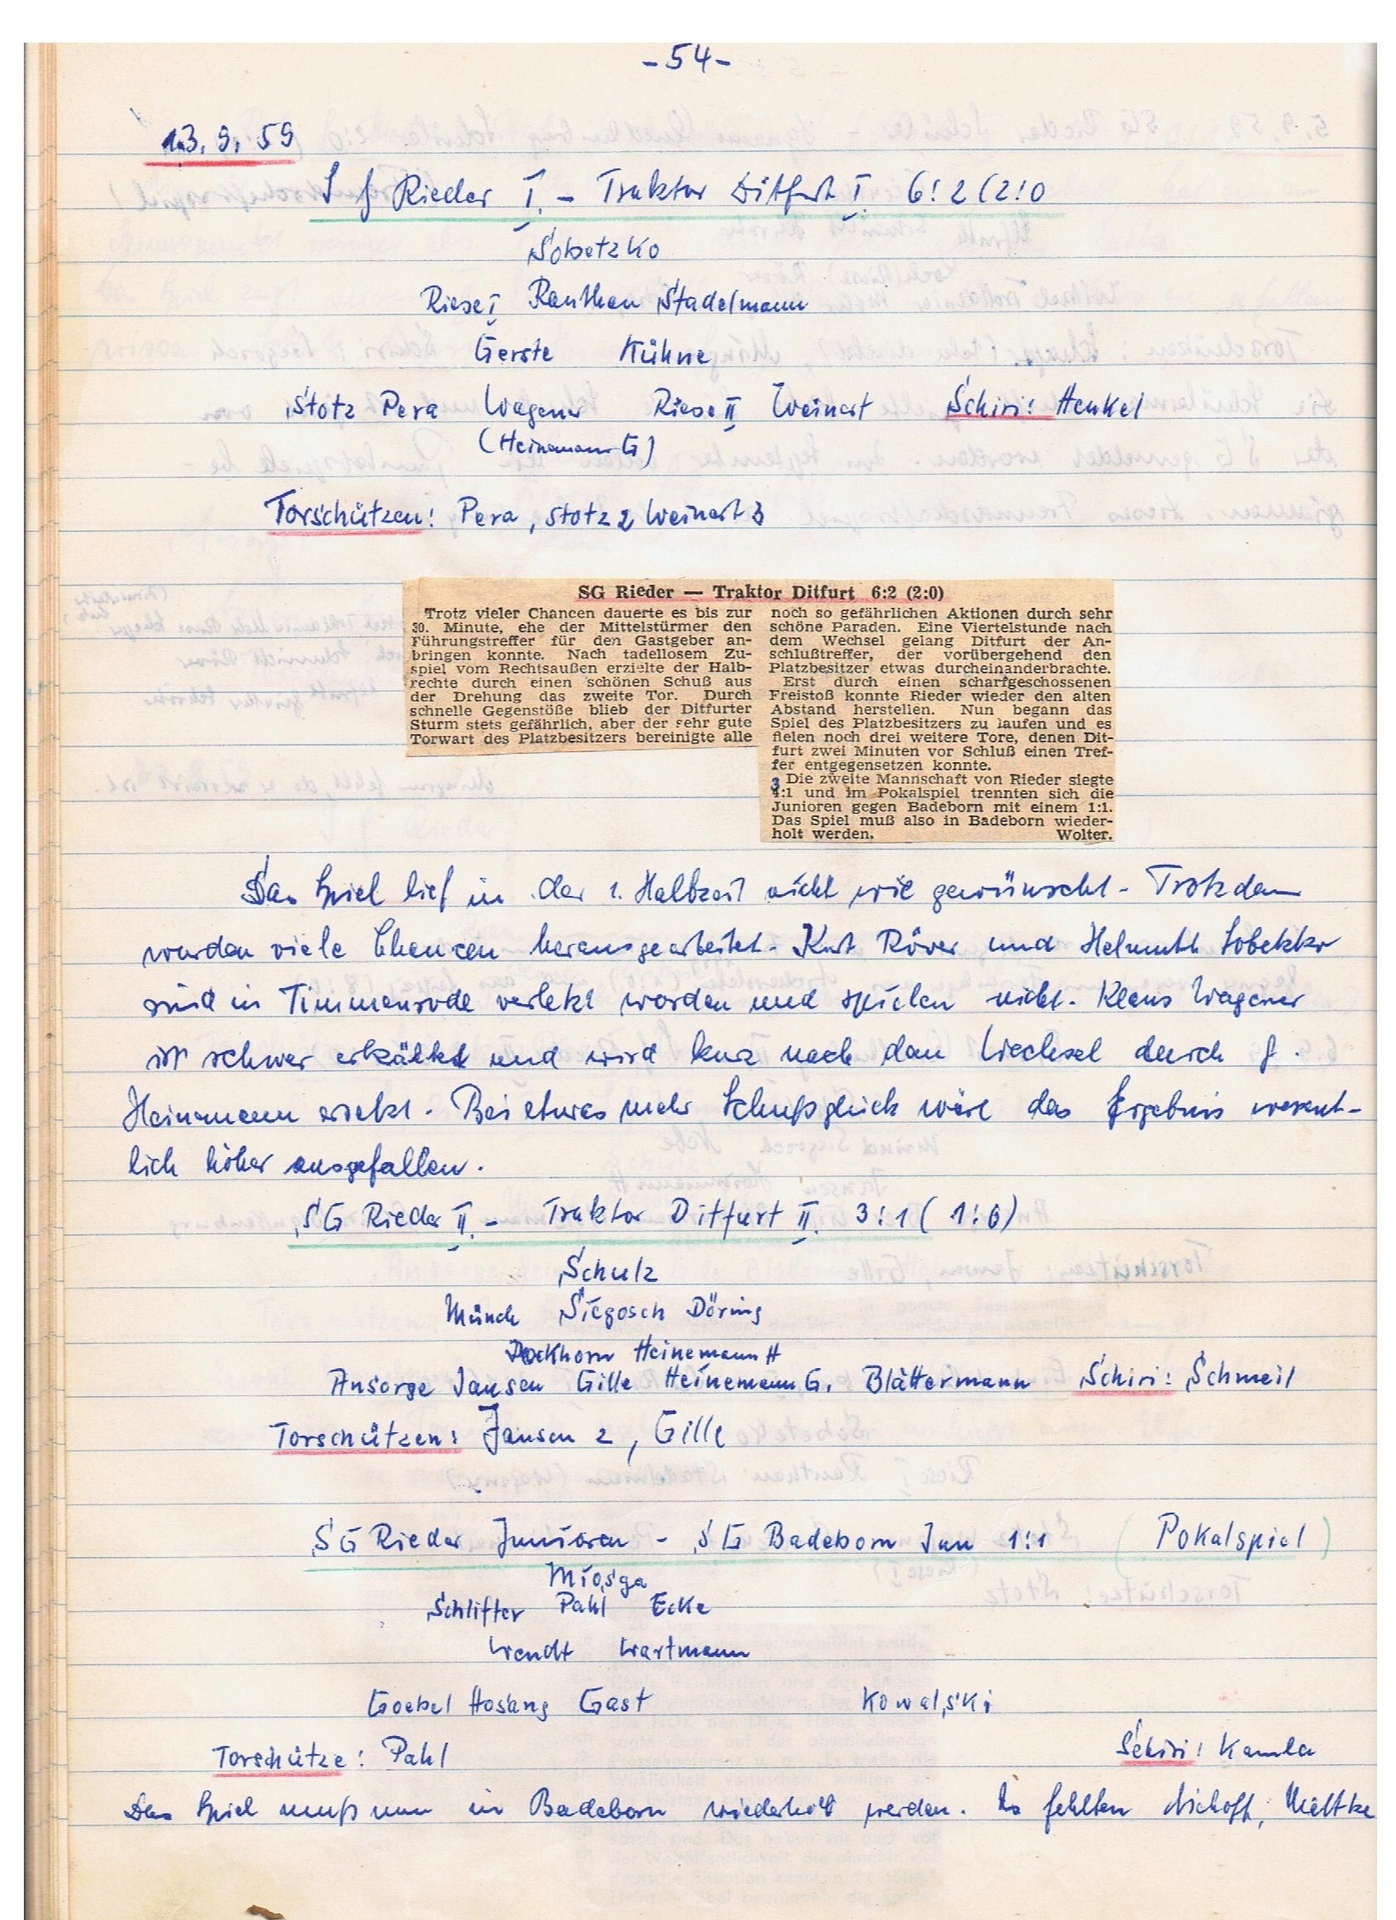 - 54 -
13. 9. 59
S f Rieder I. - Traktor Ditfurt I. 6:2 (2:0
Sobetzko
Riese I Ranthan Stadelmann
Gerste Kühne
Stotz Pera Wagener Riese II Weinert Schiri: Henkel
(Heinemann G)
Torschützen: Pera, Stotz 2 Weinert 3
SG Rieder — Traktor Ditfurt 6:2 (2:0)
Trotz vieler Chancen dauerte es bis zur
30. Minute, ehe der Mittelstürmer den
Führungstreffer für den Gastgeber an-
bringen konnte. Nach tadellosem Zu-
spiel vom Rechtsaußen erzielte der Halb-
rechte durch einen schönen Schuß aus
der Drehung das zweite Tor. Durch
schnelle Gegenstöße blieb der Ditfurter
Sturm stets gefährlich, aber der sehr gute
Torwart des Platzbesitzers bereinigte alle
noch so gefährlichen Aktionen durch sehr
schöne Paraden. Eine Viertelstunde nach
dem Wechsel gelang Ditfurt der An-
schlußtreffer, der vorübergehend den
Platzbesitzer etwas durcheinanderbrachte.
Erst durch einen scharfgeschossenen
Freistoß konnte Rieder wieder den alten
Abstand herstellen. Nun begann das
Spiel des Platzbesitzers zu laufen und es
fielen noch drei weitere Tore, denen Dit-
furt zwei Minuten vor Schluß einen Tref-
fer entgegensetzen konnte.
Die zweite Mannschaft von Rieder siegte
3:1 und im Pokalspiel trennten sich die
Junioren gegen Badeborn mit einem 1:1.
Das Spiel muß also in Badeborn wieder-
holt werden. Wolter.
Das Spiel lief in der 1. Halbzeit nicht wie gewünscht - Trotzdem
wurden viele Chancen herausgearbeitet. Kurt Röver und Helmuth Sobetzko
sind in Timmenrode verletzt worden und spielen nicht. Klaus Wagener
ist schwer erkältet und wird kurz nach dem Wechsel durch G.
Heinemann ersetzt. Bei etwas mehr Schußglück wäre das Ergebnis wesent-
lich höher ausgefallen.
SG Rieder II. - Traktor Ditfurt II. 3:1 (1:0)
Schulz
Münch Siegosch Döring
Dockhorn Heinemann H
Ansorge Jansen Gille Heinemann G. Blättermann Schiri: Schmeil
Torschützen: Jansen 2, Gille
SG Rieder Junioren - SG Badeborn Jun 1:1 (Pokalspiel)
Miosga
Schlifter Pahl Ecke
Wendt Wartmann
Goebel Hosang Gast Kowalski
Torschütze: Pahl Schiri: Kamla
Das Spiel muß nun in Badeborn wiederholt werden. Es fehlten Bischoff, Mättke